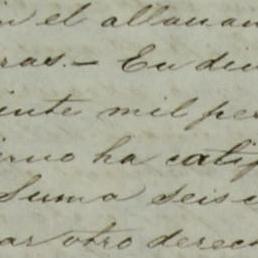 en el allanam
ras.— En diu
einte mil pes
ierno ha calif
Suma seisc
ar otro derech